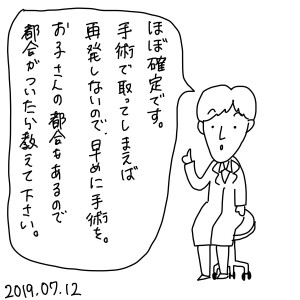 ほぼ確定です。
手術で取ってしまえば
再発しないので、早めに手術を。
お子さんの都合もあるので
都合がついたら教えて下さい。
2019.07.12